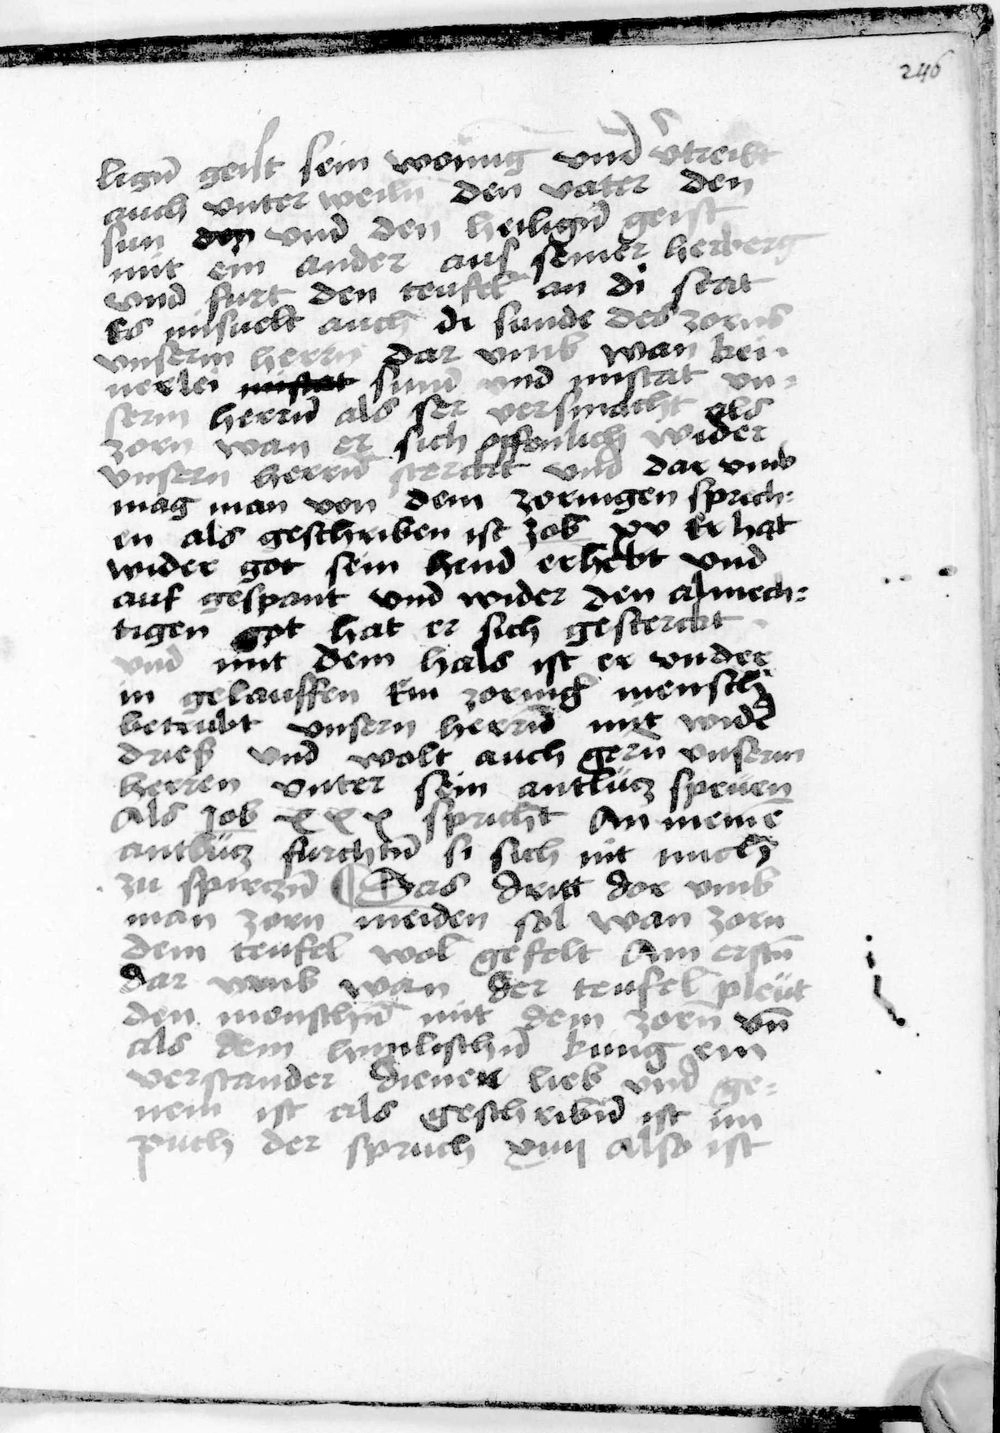 246
ligen̄ geist sein wonūg vnd v̄treibt
auch vnter weiln den vater den
sun den vnd den heilign̄ geist
mit ein ander aus seiner herberg
vnd furt den teufel an di stat
Es misuelt auch di sunde des zorns
vnserm herrn dar vmb wan kei-
nerlei mistat sund vnd mistat vn-
serm herrn̄ als ser versmacht als
zorn wan er sich offenlich wider
vnsern herrn̄ sterckt vnd dar vmb
mag man von dem zornigen sprech-
en als geschriben ist Job xv Er hat
wider got sein hend erhebt vnd
auf gespant vnd wider den almech-
tigen got hat er sich gesterckt
vnd mit dem hals ist er wider
in gelauffen Ein zornig mensch
betrubt vnsern herrn̄ mit wider
drieß vnd wolt auch gern vnserm
herren vnter sein antlücz speüen
Als Job xxx spricht An meinē
antlücz furchtn̄ si sich nit mich
zu spirczn̄ Das dritt dor vmb
man zorn meiden sol wan zorn
dem teufel wol gefelt Am erstn̄
dar vmb wan der teufel pleüt
den menschn̄ mit dem zorn vn̄
als dem himlischn̄ kunig ein
verstander diener lieb vnd ge-
nem ist als geschribn̄ ist im
puch der spruch xiiii Also ist